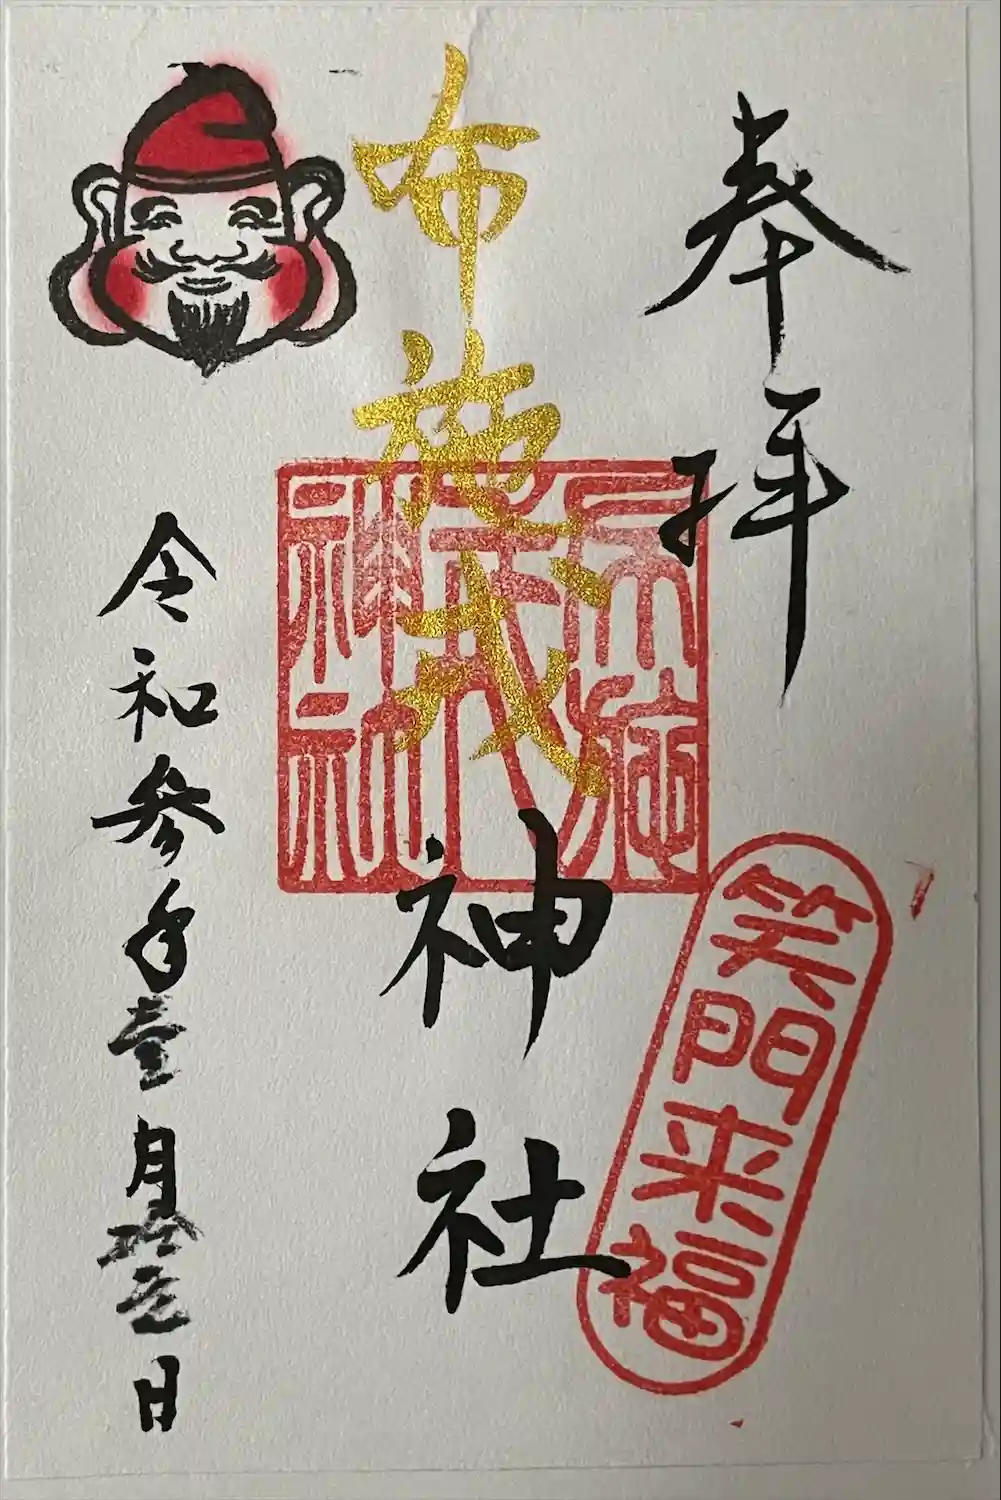 奉拝
笑門来福
布施戎神社
布施戎神社
令和参年壹月拾壱日